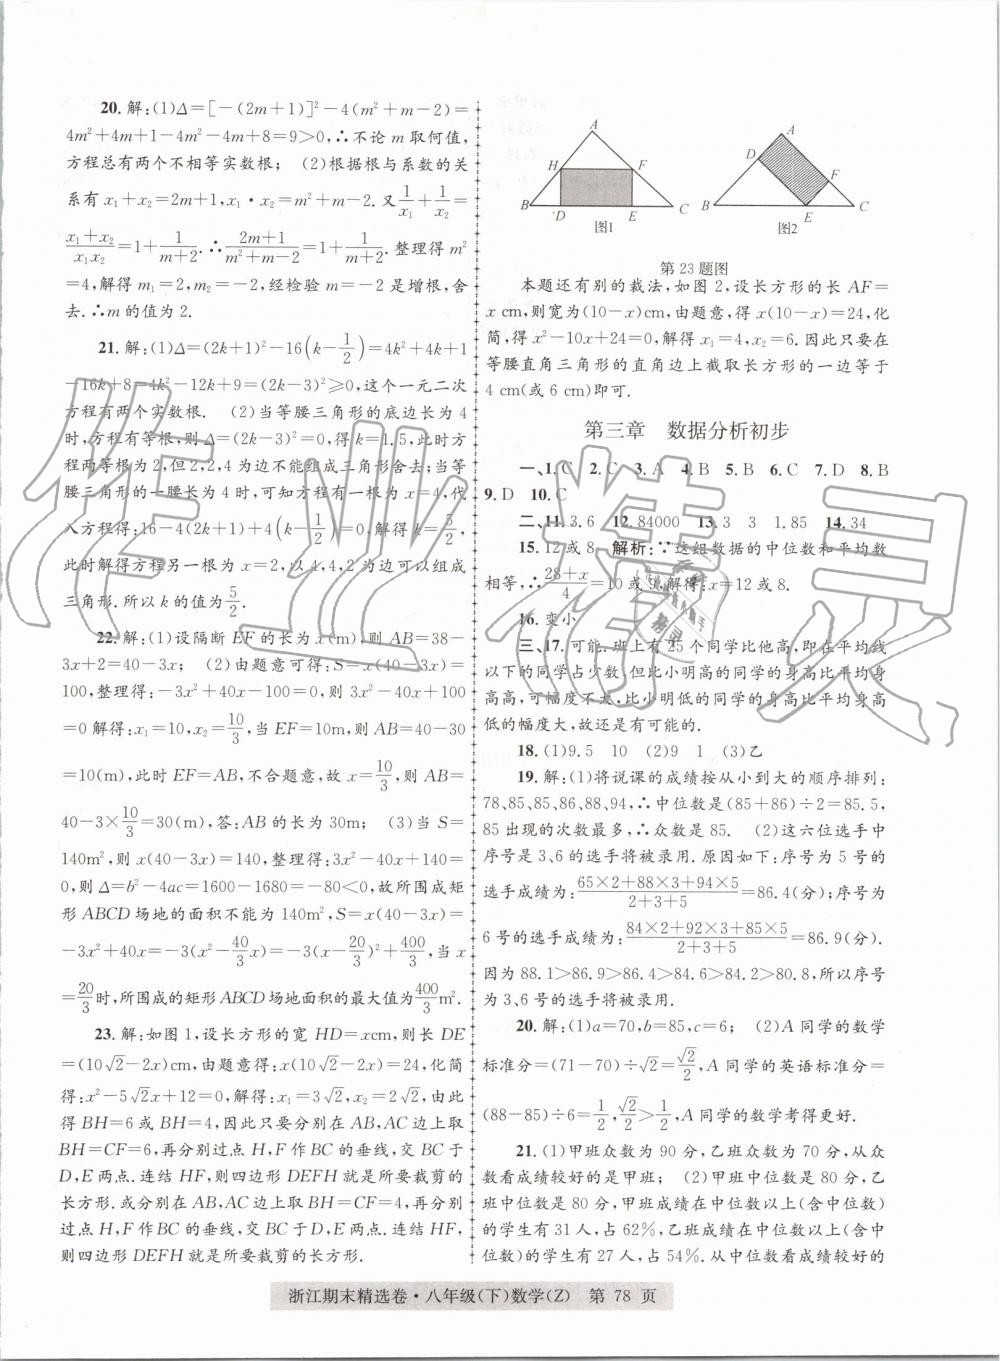 20. 解:(1)Δ=[-(2m+1)]²-4(m²+m-2)=
4m²+4m+1-4m²-4m+8=9>0,∴不论m取何值,
方程总有两个不相等实数根; (2)根据根与系数的关
系有x₁+x₂=2m+1,x₁·x₂=m²+m-2.又1/x₁+1/x₂=
(x₁+x₂)/(x₁x₂)=1+1/(m+2).∴(2m+1)/(m²+m-2)=1+1/(m+2).整理得m²
=4,解得m₁=2,m₂=-2,经检验m=-2是增根,舍
去.∴m的值为2.
21. 解:(1)Δ=(2k+1)²-16(k-1/2)=4k²+4k+1
-16k+8=4k²-12k+9=(2k-3)²≥0,这个一元二次
方程有两个实数根. (2)当等腰三角形的底边长为4
时,方程有等根,则Δ=(2k-3)²=0,得k=1.5,此时
方程两等根为2,但2,2,4为边不能组成三角形舍去;当等
腰三角形的一腰长为4时,可知方程有一根为x=4,代
入方程得:16-4(2k+1)+4(k-1/2)=0,解得k=5/2,
此时解得方程另一根为x=2,以4,4,2为边可以组成
三角形.所以k的值为5/2.
22. 解:(1)设隔断EF的长为x(m),则AB=38-
3x+2=40-3x; (2)由题意可得:S=x(40-3x)=
100,整理得:-3x²+40x-100=0,则3x²-40x+100
=0解得:x₁=10,x₂=10/3,当EF=10m,则AB=40-30
=10(m),此时EF=AB,不合题意,故x=10/3,则AB=
40-3×10/3=30(m),答:AB的长为30m; (3)当S=
140m²,则x(40-3x)=140,整理得:3x²-40x+140=
0,则Δ=b²-4ac=1600-1680=-80<0,故所围成矩
形ABCD场地的面积不能为140m²,S=x(40-3x)=
-3x²+40x=-3(x²-40/3x)=-3(x-20/3)²+400/3,当x
=20/3时,所围成的矩形ABCD场地面积的最大值为400/3m².
23. 解:如图1,设长方形的宽HD=xcm,则长DE
=(10√2-2x)cm,由题意得:x(10√2-2x)=24,化简
得:x²-5√2x+12=0,解得:x₁=3√2,x₂=2√2,由此
得BH=6或BH=4,因此只要分别在AB,AC边上取
BH=CF=6,再分别过点H,F作BC的垂线,交BC于
D,E两点.连结HF,则四边形DEFH就是所要裁剪的
长方形.或分别在AB,AC边上取BH=CF=4,再分别
过点H,F作BC的垂线,交BC于D,E两点.连结HF,
则四边形DEFH就是所要裁剪的长方形.
A
H F
B D E C
图1
A
D
F
B E C
图2
第23题图
本题还有别的裁法,如图2,设长方形的长AF=
x cm,则宽为(10-x)cm,由题意,得x(10-x)=24,化
简,得x²-10x+24=0,解得x₁=4,x₂=6.因此只要在
等腰直角三角形的直角边上截取长方形的一边等于
4 cm(或6 cm)即可.
第三章 数据分析初步
一、1. C 2. C 3. A 4. B 5. B 6. C 7. D 8. B
9. D 10. C
二、11. 3.6 12. 84000 13. 3 3 1.85 14. 34
15. 12或8 解析:∵这组数据的中位数和平均数
相等,∴(28+x)/4=10或9,解得:x=12或8.
16. 变小
三、17. 可能.班上有25个同学比他高,即在平均线
以下的同学占少数,但比小明高的同学的身高比平均身
高高,可幅度不大,比小明低的同学的身高比平均身高
低的幅度大,故还是有可能的.
18. (1)9.5 10 (2)9 1 (3)乙
19. 解:(1)将说课的成绩按从小到大的顺序排列:
78、85、85、86、88、94,∴中位数是(85+86)÷2=85.5,
85出现的次数最多,∴众数是85. (2)这六位选手中
序号是3、6的选手将被录用.原因如下:序号为5号的
选手成绩为:(65×2+88×3+94×5)/(2+3+5)=86.4(分);序号为
6号的选手成绩为:(84×2+92×3+85×5)/(2+3+5)=86.9(分).
因为88.1>86.9>86.4>84.6>84.2>80.8,所以序号
为3、6号的选手将被录用.
20. 解:(1)a=70,b=85,c=6; (2)A同学的数学
标准分=(71-70)÷√2=√2/2,A同学的英语标准分=
(88-85)÷6=1/2,√2/2>1/2,A同学的数学考得更好.
21. (1)甲班众数为90分,乙班众数为70分,从众
数看成绩较好的是甲班; (2)甲班中位数是80分,乙
班中位数是80分,甲班成绩在中位数以上(含中位数)
的学生有31人,占62%,乙班成绩在中位数以上(含中
位数)的学生有27人,占54%.从中位数看成绩较好的
浙江期末精选卷·八年级(下)数学(Z) 第78页
作业精灵